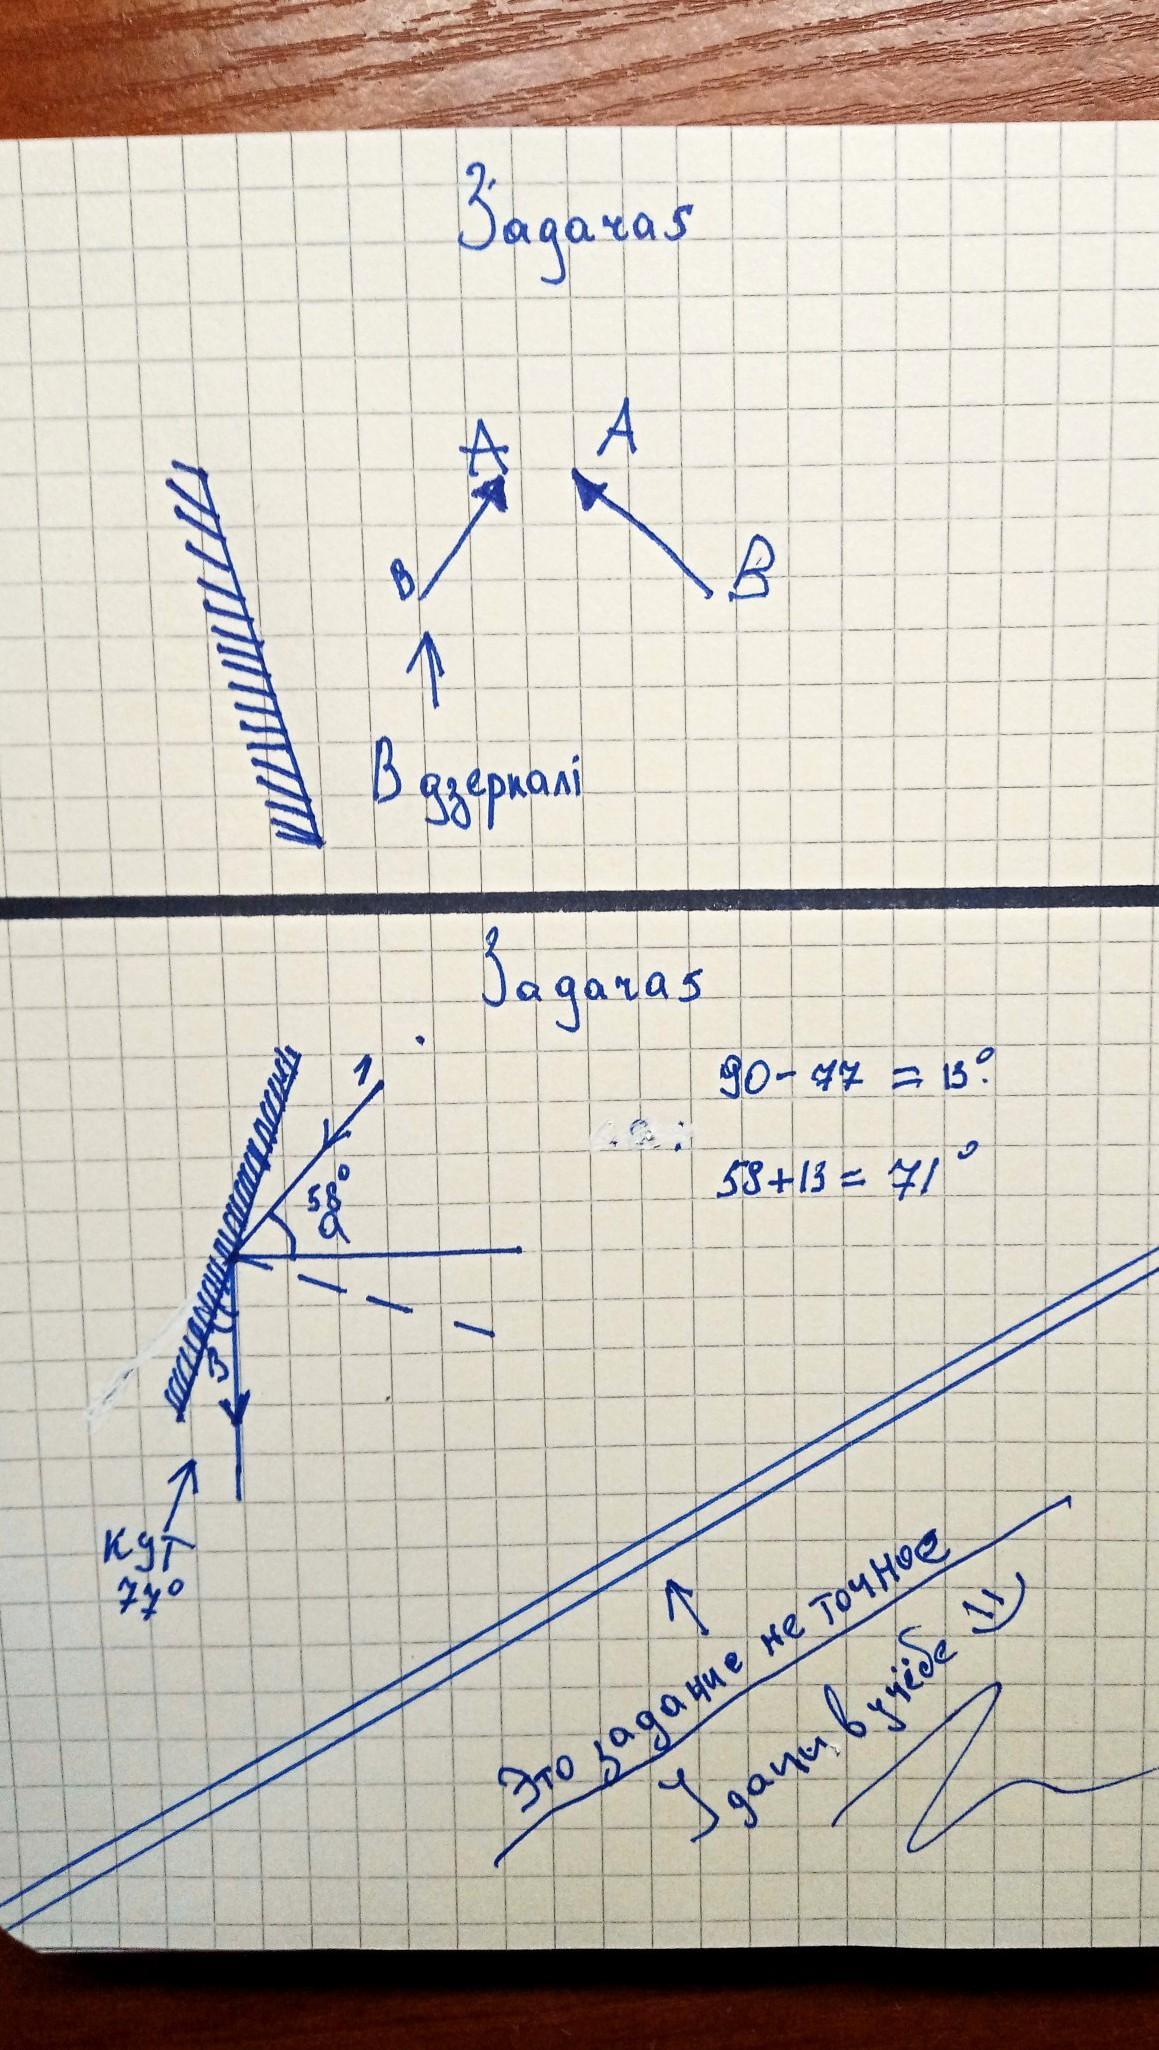 Задача5
A A
B B
В дзеркалі
Задача5
1
90-77 = 13°.
58°
α
58+13 = 71°
β
Кут
77°
Это задание не точное
Удачи в учёбе